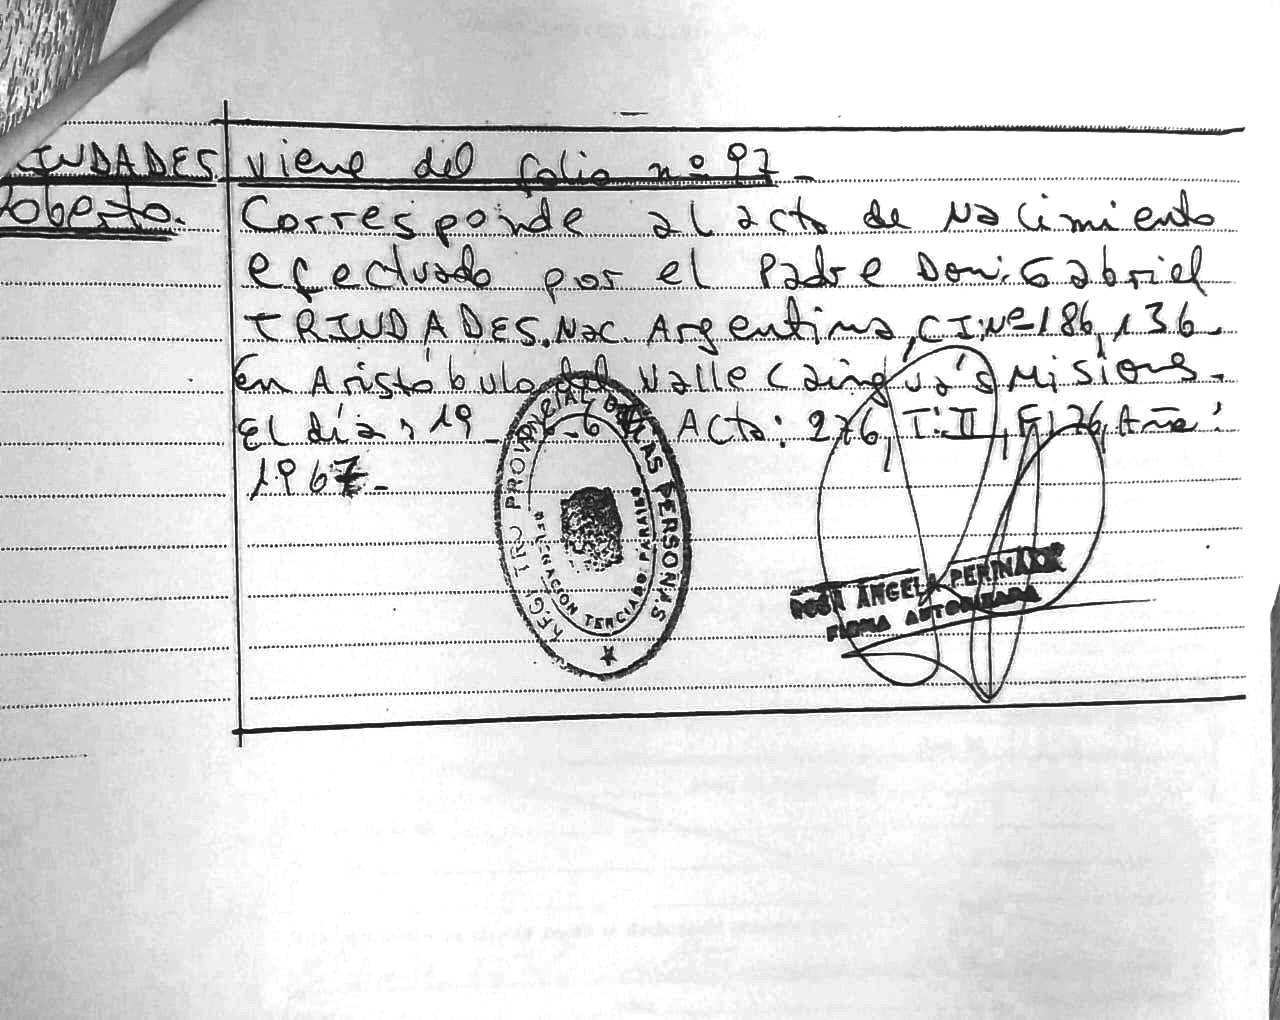 INDADES. viene del folio nº 97.-
Roberto. Corresponde al acta de Nacimiento
efectuado por el Padre Don: Gabriel
TRINDADES. Nac. Argentina, C.I.Nº 186,136.
En Aristóbulo del Valle Cainguás Misiones.
El día, 19 Acta: 276, T: II, F176, Año:
1967.-
PROVINCIAL DE LAS PERSONAS
DELEGACION TERCIADO PARAISO
ROSA ANGELA
FIRMA AUTORIZADA